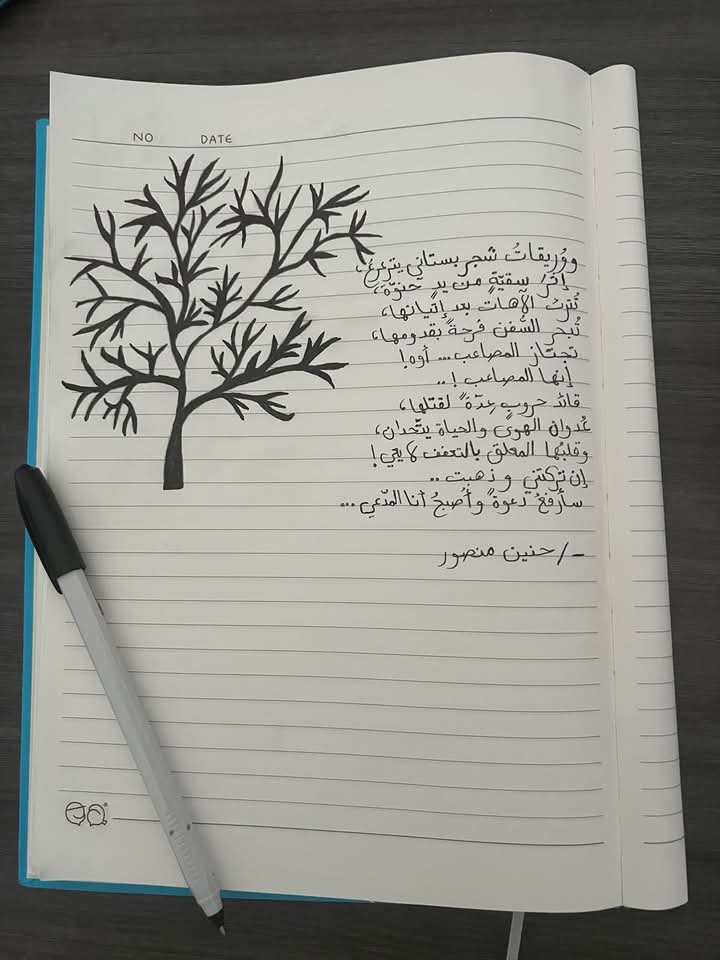 NO DATE
ووُريقاتُ شجر بستاني يترعرعُ،
إثرَ سقيّةٍ من يدٍ حنونة،
تُتركُ الآهات بعد إتيانها،
تُبحر السُّفن فرحةً بقدومها،
تجتاز المصاعب... أوه!
إنها المصاعب !..
قائد حروبٍ عِدّةً لقتلها،
عُدوان الهوى والحياة يتّحدان،
وقلبُها المعلق بالتعفف لا يعي!
إن تركتني و ذهبت ..
سأرفعُ دعوةً وأُصبحُ أنا المدّعي ...
-/ حنين منصور